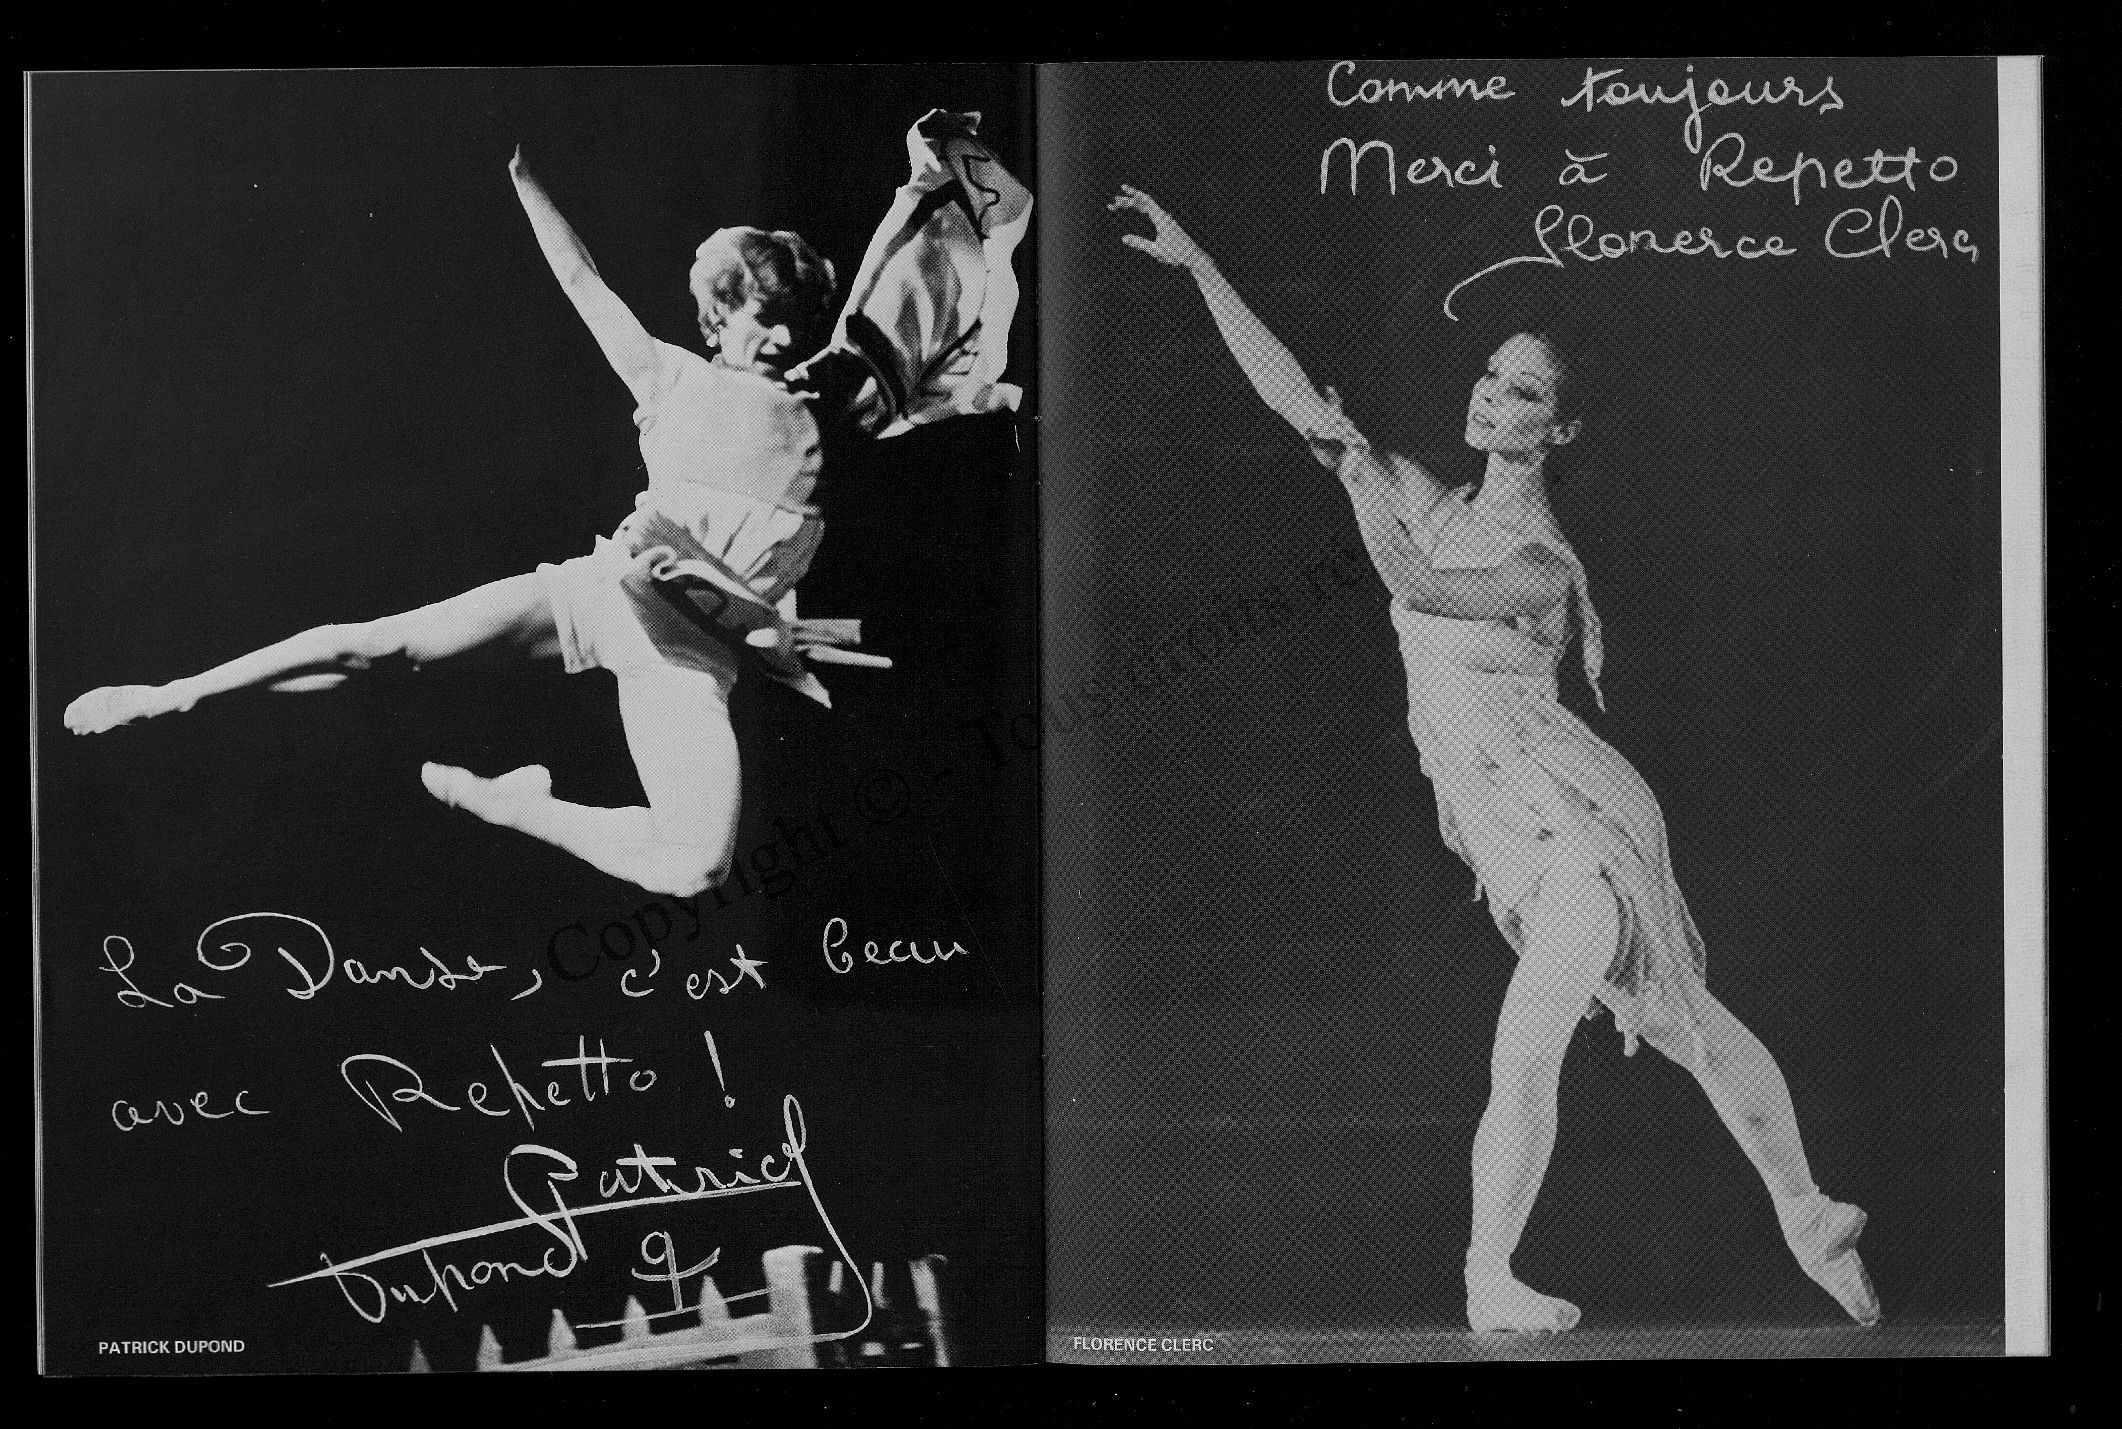 La Danse, c'est beau
avec Repetto !
Patrick
Dupond
PATRICK DUPOND
Comme toujours
Merci à Repetto
Florence Clerc
FLORENCE CLERC
Copyright © - Tous droits